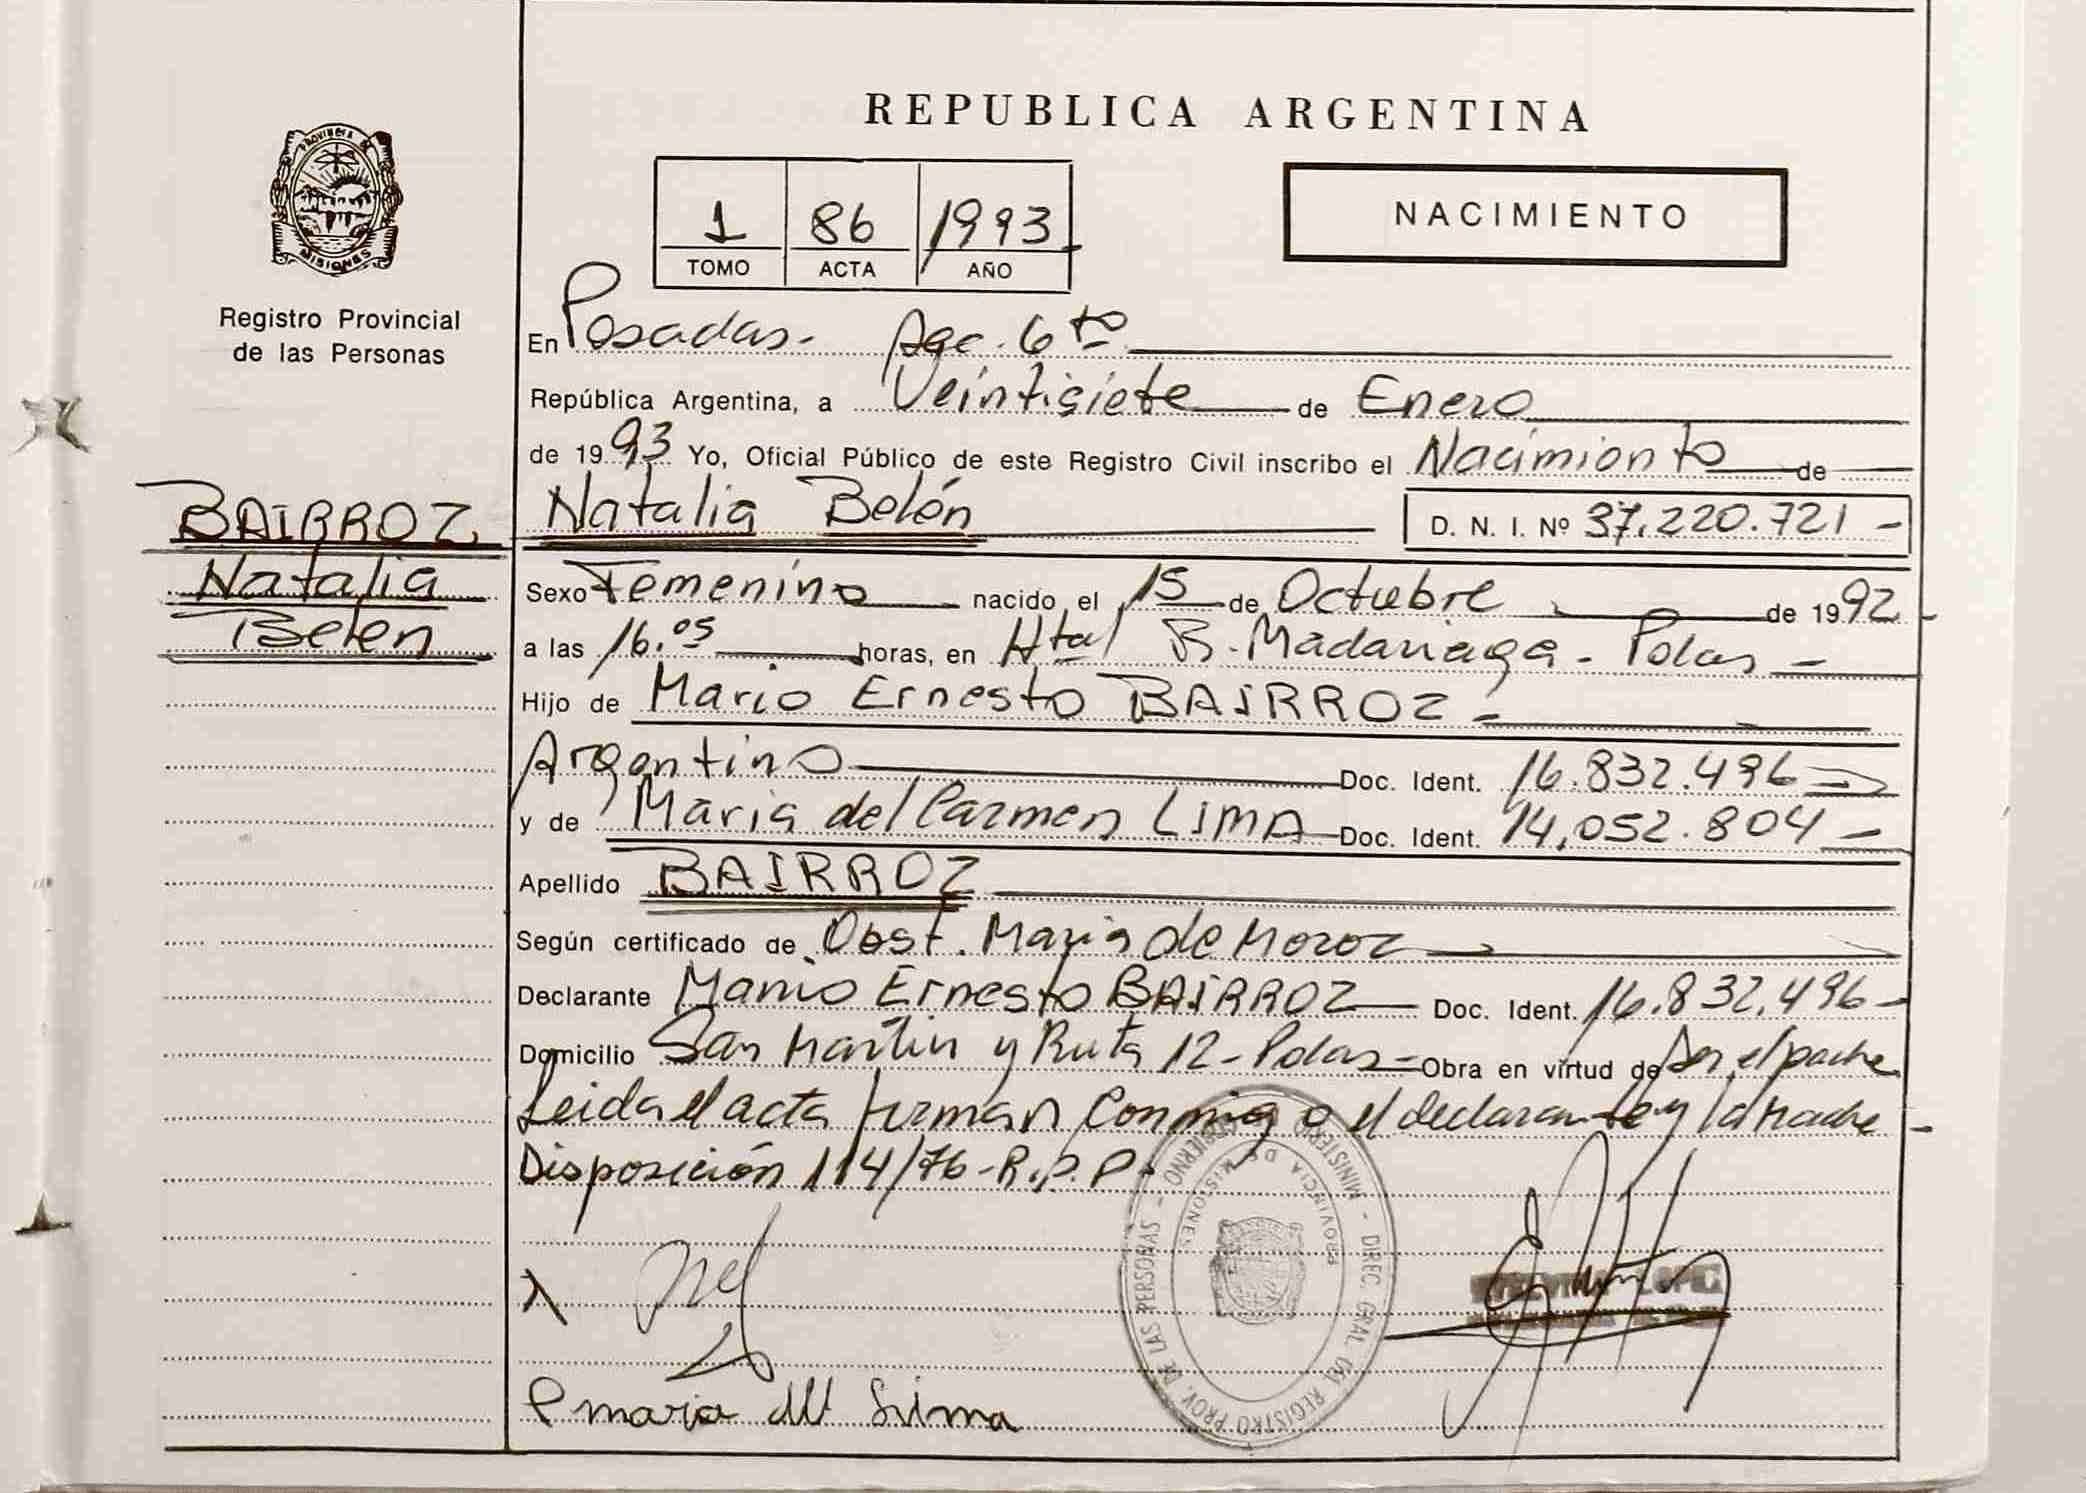 REPUBLICA ARGENTINA
PROVINCIA DE
MISIONES
Registro Provincial
de las Personas
1 86 1993
TOMO ACTA AÑO
NACIMIENTO
En Posadas. Agc. 6to
República Argentina, a Veintisiete de Enero
de 1993 Yo, Oficial Público de este Registro Civil inscribo el Nacimiento de
BAIRROZ
Natalia
Belén
Natalia Belén D. N. I. Nº 37.220.721 -
Sexo Femenino nacido el 15 de Octubre de 1992
a las 16.05 horas, en Htal R. Madariaga - Pdas -
Hijo de Mario Ernesto BAIRROZ -
Argentino Doc. Ident. 16.832.496
y de Maria del Carmen LIMA Doc. Ident. 14.052.804 -
Apellido BAIRROZ
Según certificado de Obst. Maria de Moroz
Declarante Mario Ernesto BAIRROZ Doc. Ident. 16.832.496 -
Domicilio San Martin y Ruta 12 - Pdas - Obra en virtud de Ser el padre
Leida el acta firman Conmigo el declarante y la Madre -
Disposición 114/76 - R.P.P.
MINISTERIO GOBIERNO - DIREC. GRAL. DEL REGISTRO PROV. DE LAS PERSONAS -
PROVINCIA DE MISIONES
maria del Lima